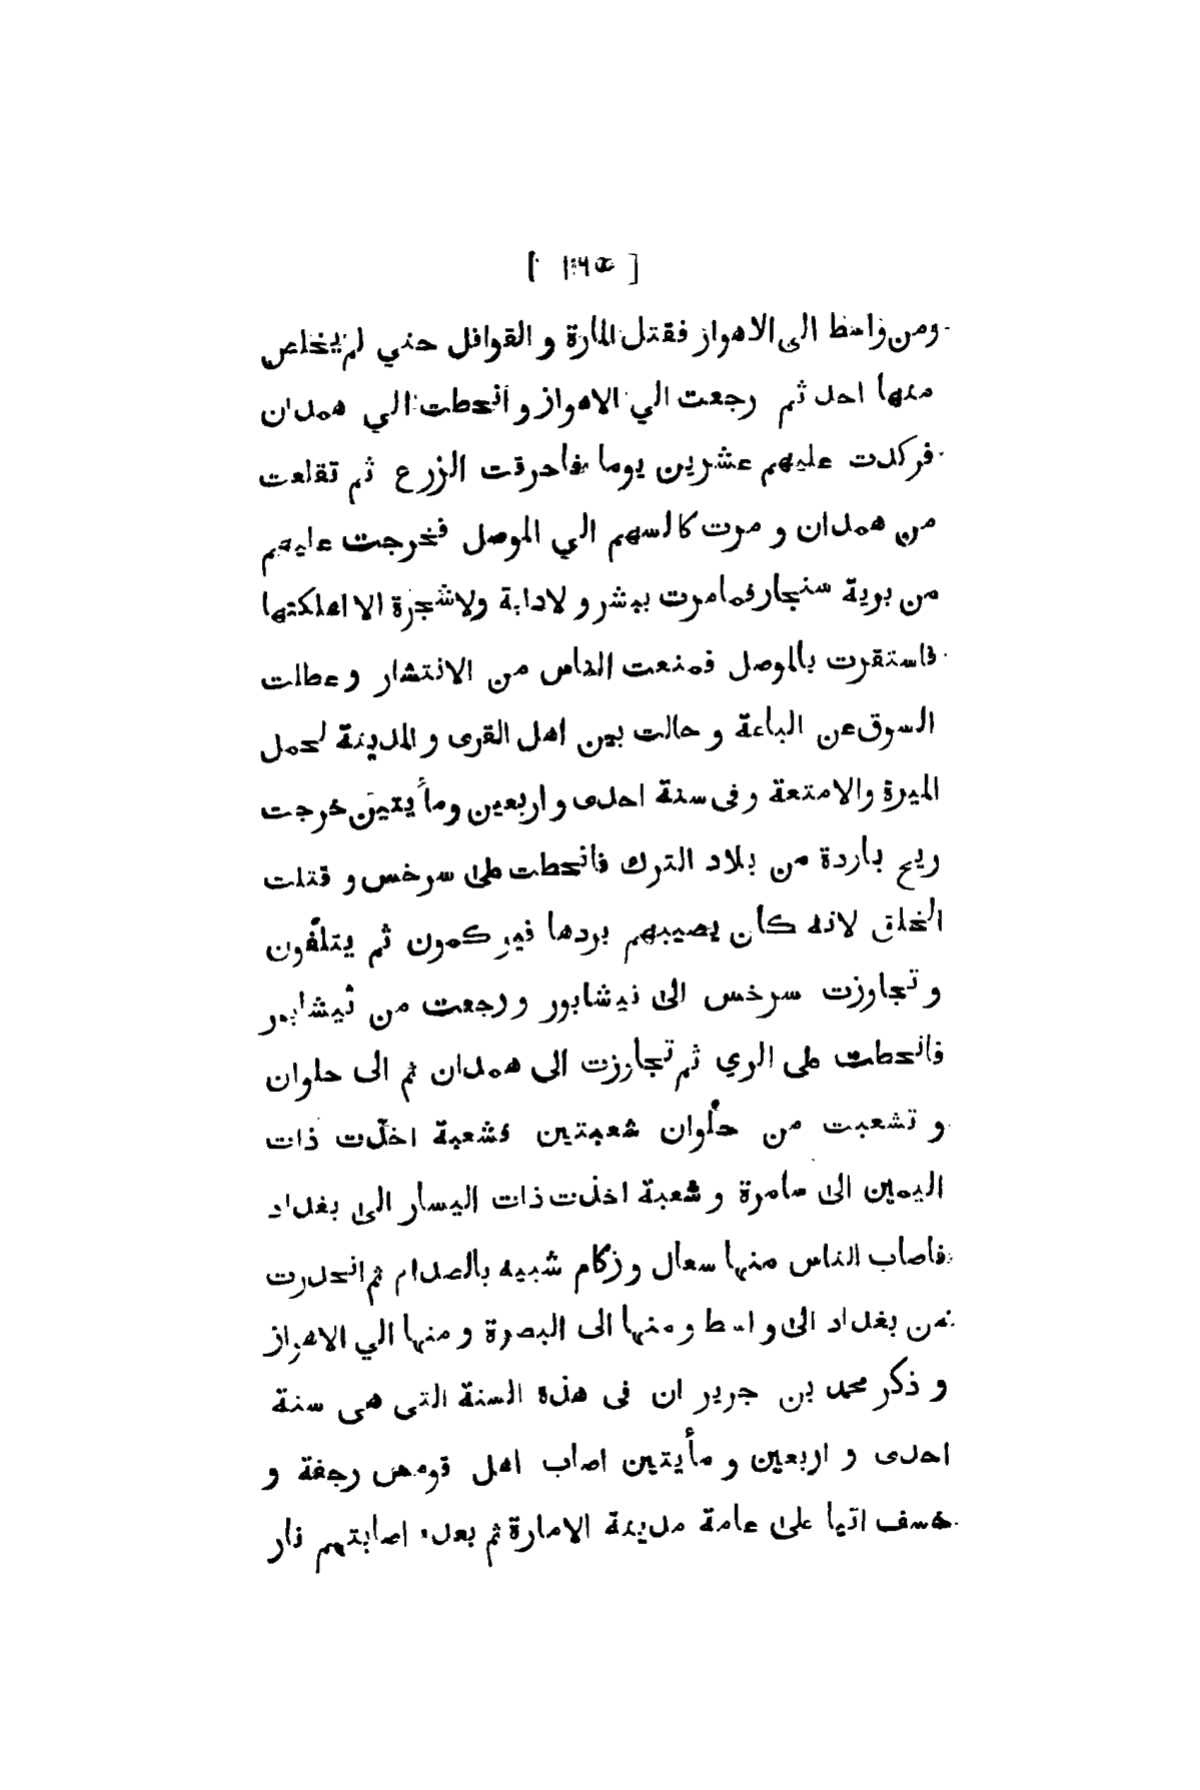 ومن واسط الى الاهواز فقتل المارة و القوافل حتي لم يخلص
منها احد ثم رجعت الي الاهواز و انحطت الي همدان
فركدت عليهم عشرين يوما فاحرقت الزرع ثم تقلعت
من همدان و مرت كالسهم الي الموصل فخرجت عليهم
من برية سنجار فما مرت ببشر و لا دابة ولا شجرة الا اهلكتها
فاستقرت بالموصل فمنعت الناس من الانتشار و عطلت
السوق عن الباعة و حالت بين اهل القرى و المدينة لحمل
الميرة والامتعة و فى سنة احدى و اربعين ومأيتين خرجت
ريح باردة من بلاد الترك فانحطت على سرخس و قتلت
الخلق لانه كان يصيبهم بردها فيركمون ثم يتلفون
و تجاوزت سرخس الى نيشابور و رجعت من نيشابور
فانحطت على الري ثم تجاوزت الى همدان ثم الى حلوان
و تشعبت من حلوان شعبتين فشعبة اخذت ذات
اليمين الى سامرة و شعبة اخذت ذات اليسار الى بغداد
فاصاب الناس منها سعال و زكام شبيه بالصدام ثم انحدرت
من بغداد الى واسط و منها الى البصرة و منها الي الاهواز
و ذكر محمد بن جرير ان فى هذه السنة التى هى سنة
احدى و اربعين و مأيتين اصاب اهل قومس رجفة و
خسف اتيا على عامة مدينة الامارة ثم بعد اصابتهم نار